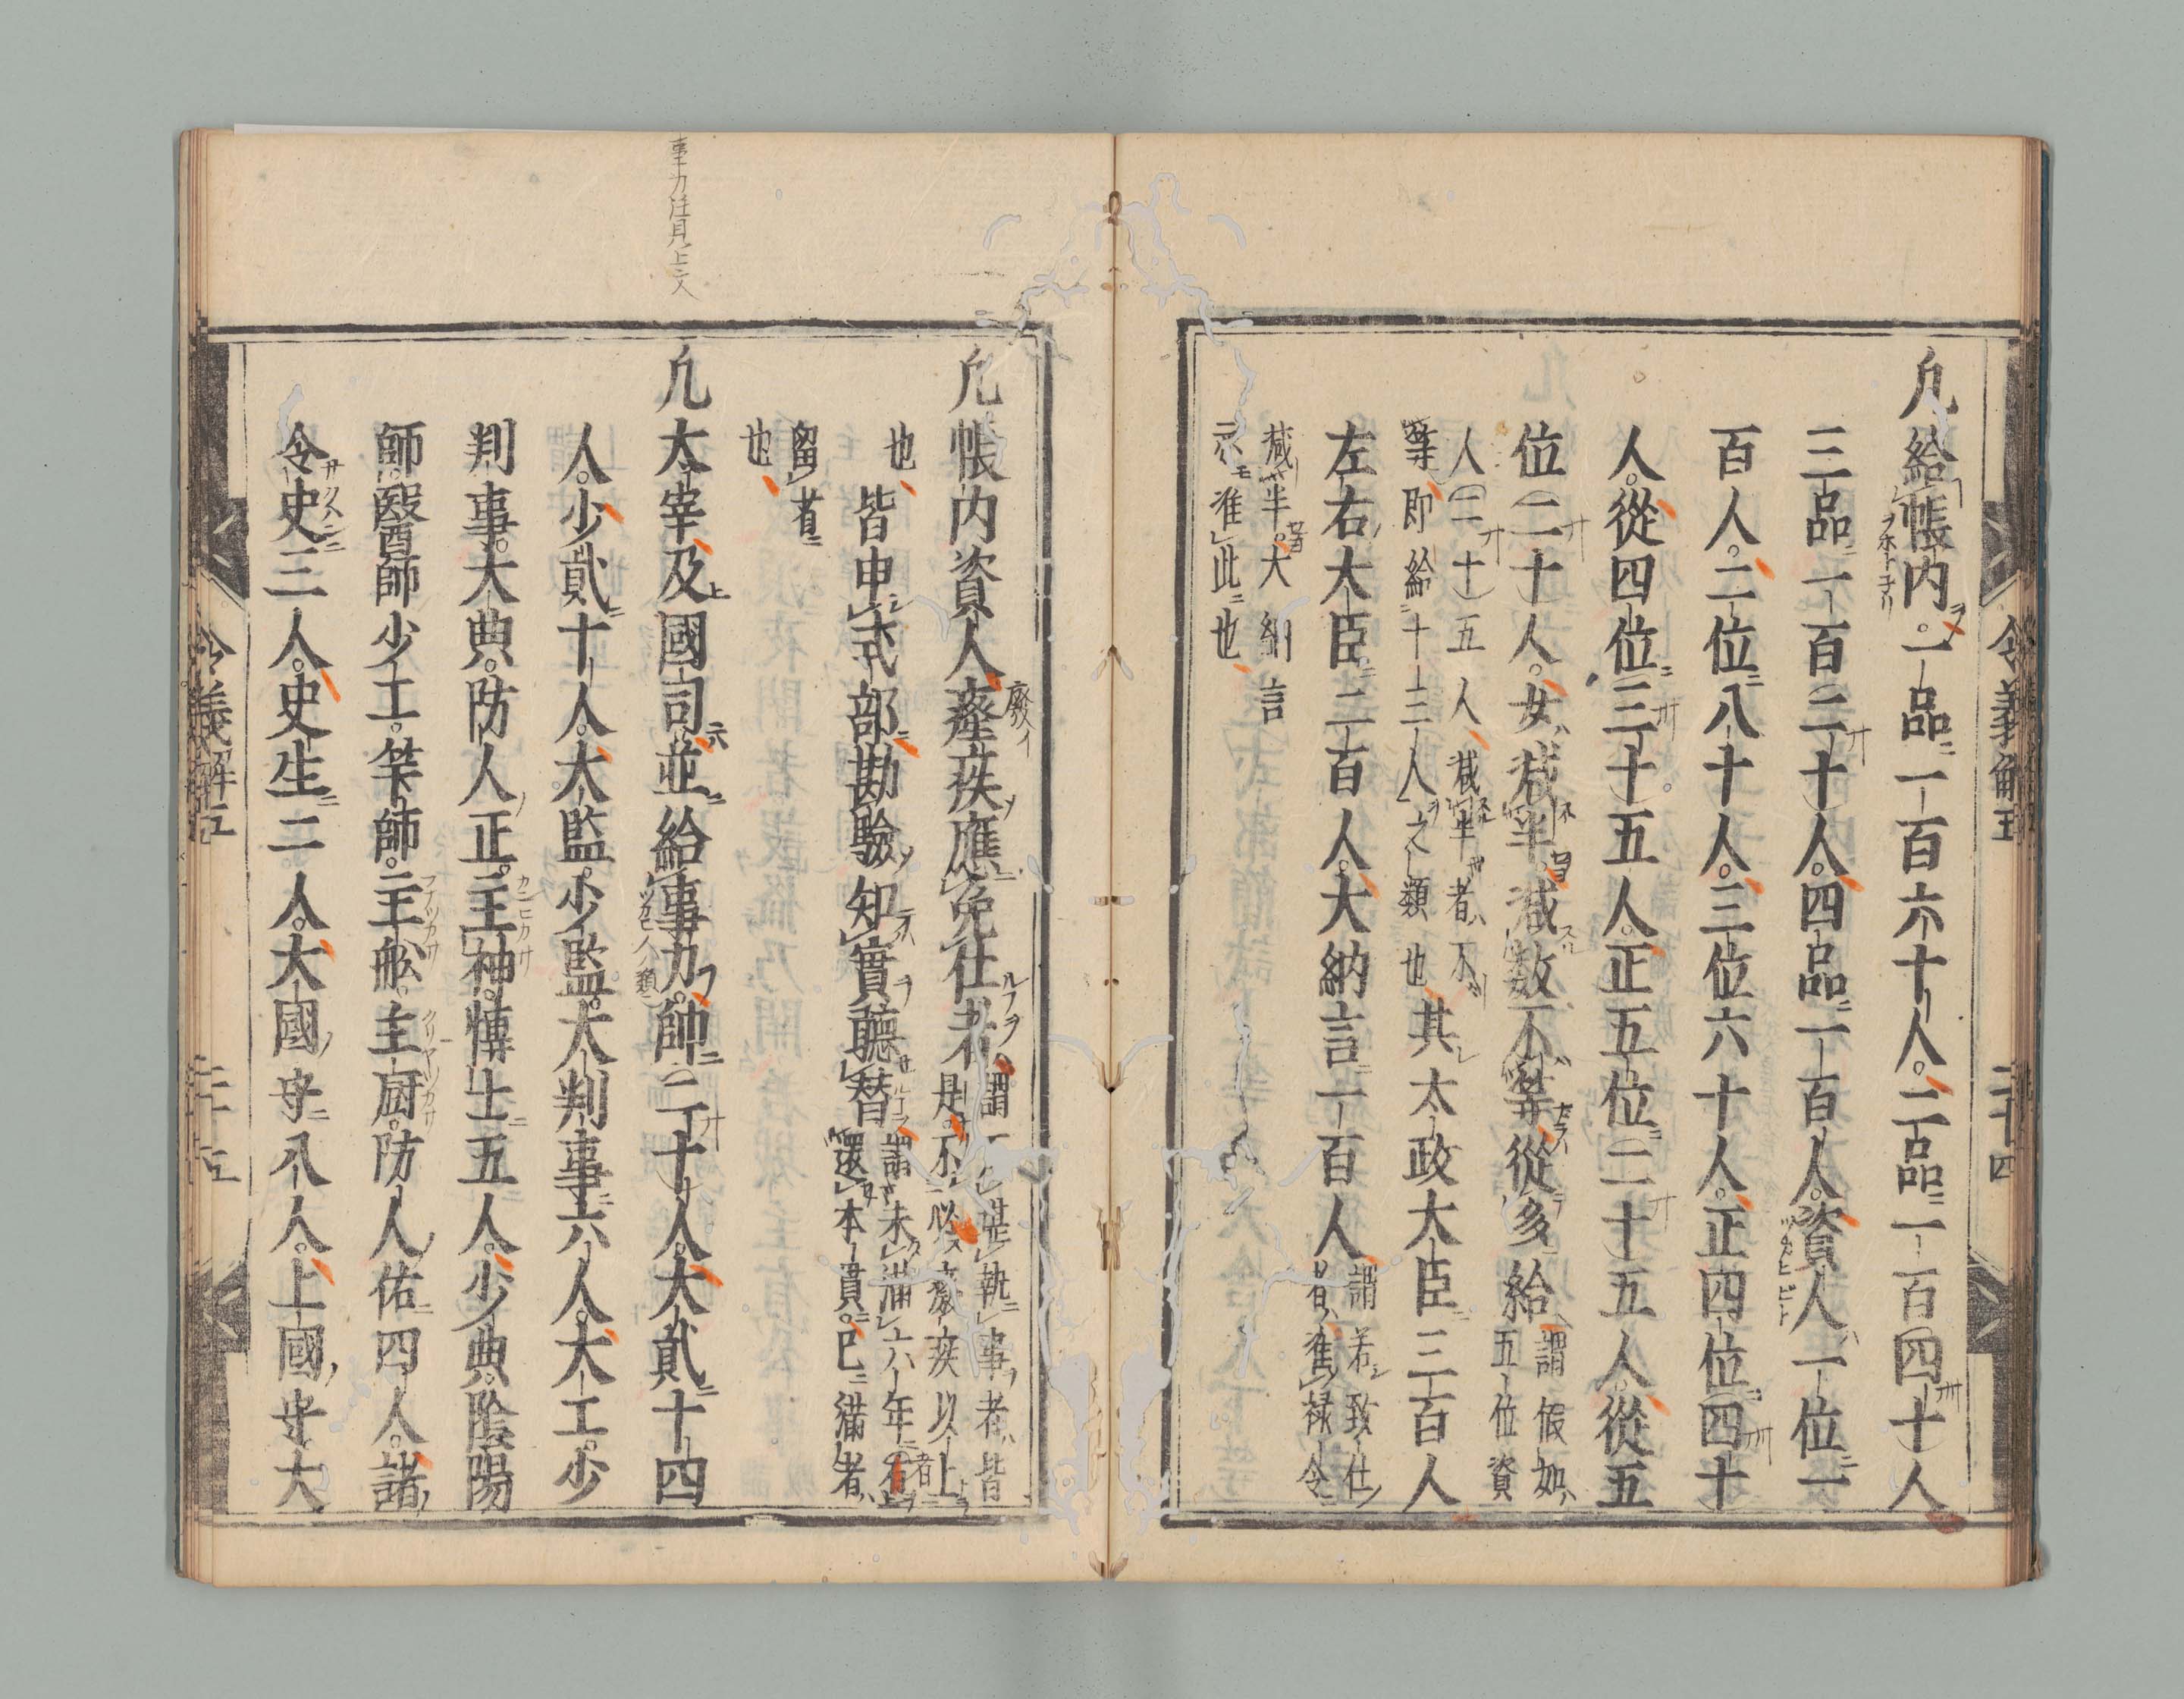 凢給帳内。一品一百六十人。二品一百四十人
三品一百二十人。四品一百人。資人一位一
百人。二位八十人。三位六十人。正四位四十
人。從四位三十五人。正五位二十五人。從五
位二十人。女減半。減數不等從多給
謂假如
五位資
人二十五人減半者不
等即給十三人之類也
其太政大臣三百人
左右大臣二百人。大納言一百人
謂若致仕
者准禄令
減半大納言
亦准此也
令義解五
二十四
凢帳内資人癃疾應免仕者
廢イ
謂一遥執事者皆
是不必癈疾以上
也
皆申式部勘驗知實聽替
謂未滿六年者
還本貫已滿者
留省
也
事力注見上文
凢大宰及國司並給事力。帥二十人。大貳十四
人。少貳十人。大監。少監。大判事六人。大工。少
判事。大典。防人正。主神。博士五人。少典。陰陽
師。醫師。少工。筭師。主舩。主厨。防人佑四人。諸
令史三人。史生二人。大國守八人。上國守大
令義解五
二十五